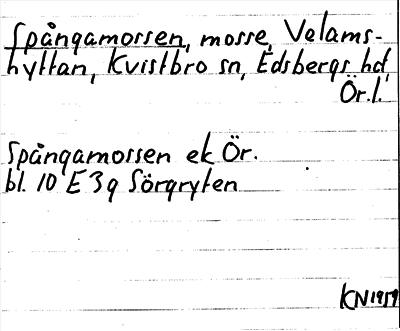 Spångamossen, mosse, Velams-
hyttan, Kvistbro sn, Edsbergs hd,
Ör.l.
Spångamossen ek Ör.
bl. 10 E 3g Sörgryten
KN 1959